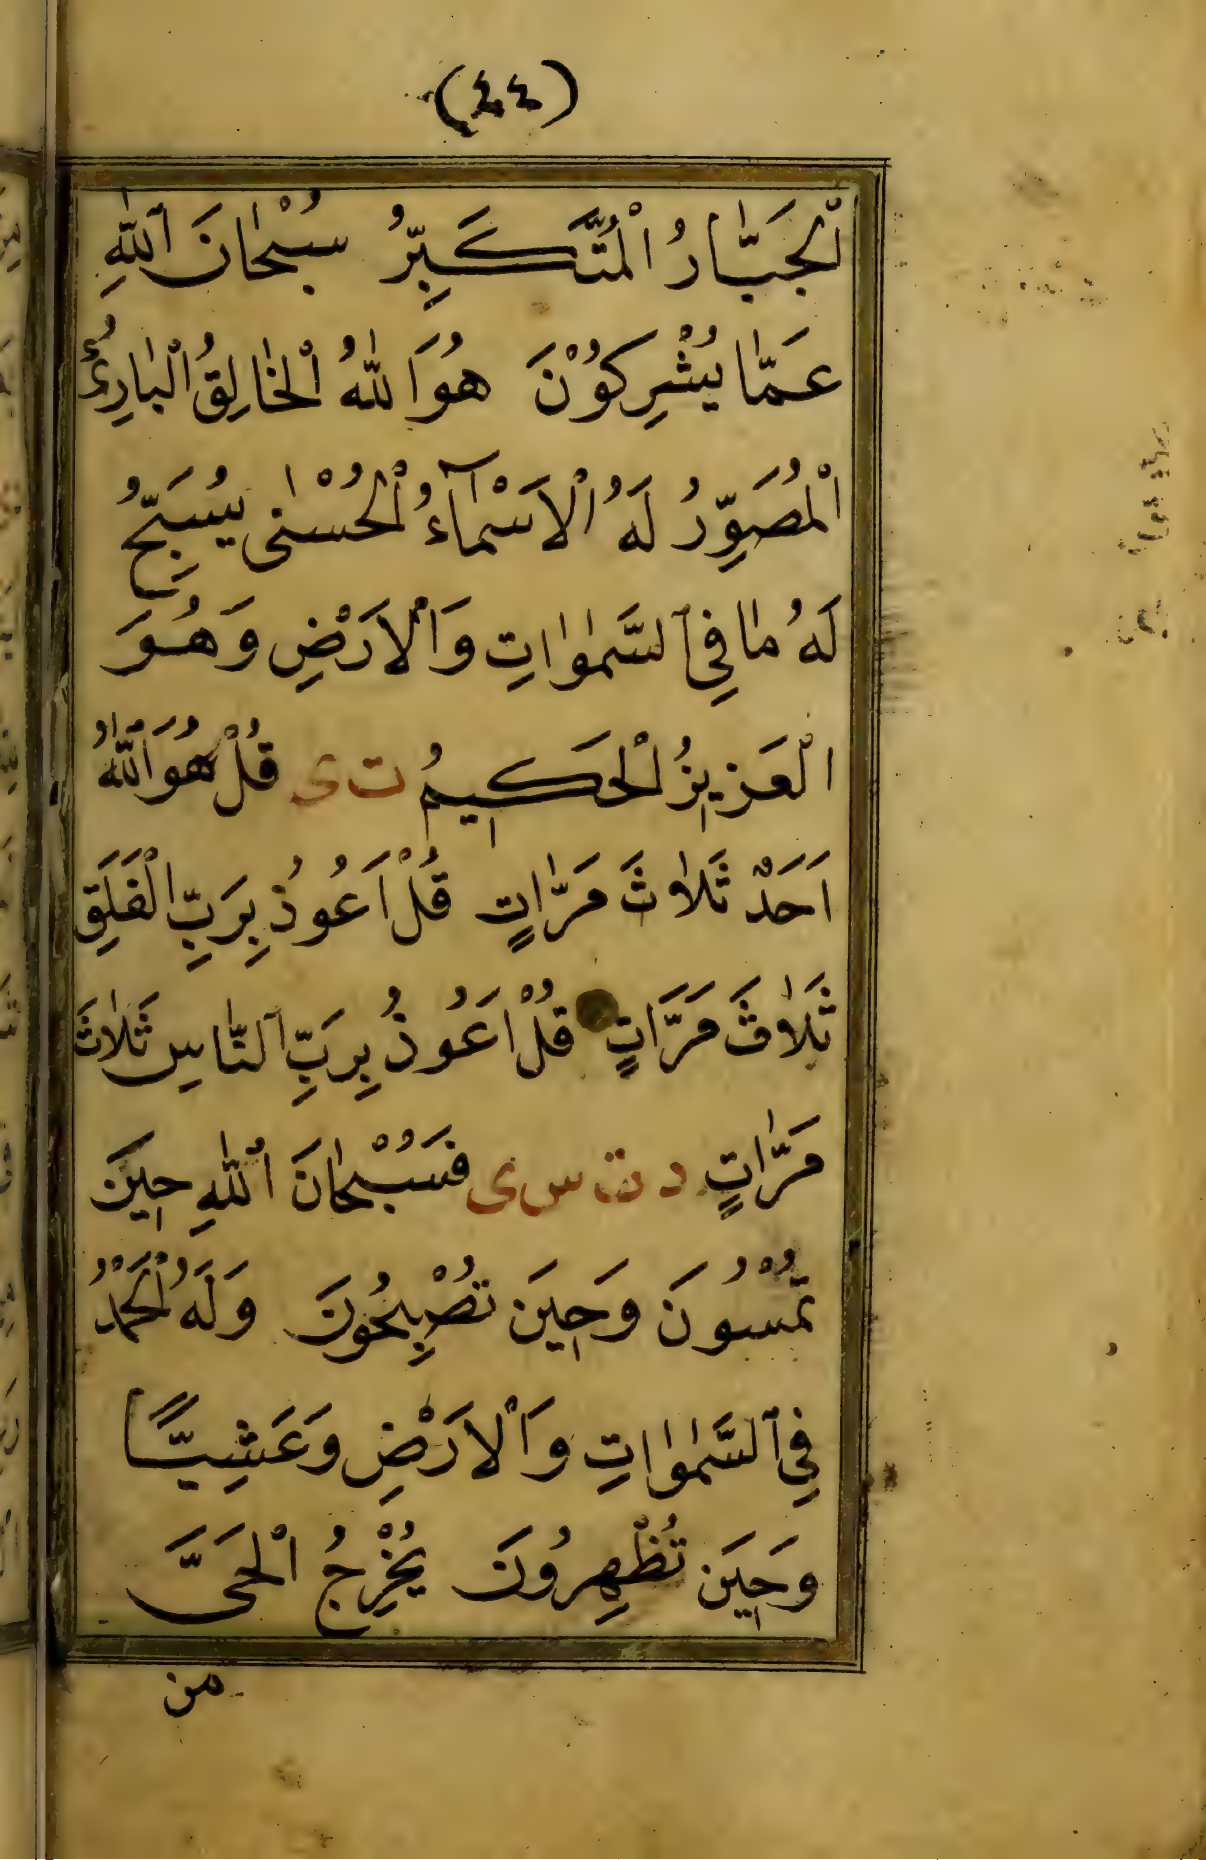 (٤٤)
الْجَبَّارُ الْمُتَكَبِّرُ سُبْحَانَ ٱللّٰهِ
عَمَّا يُشْرِكُوْنَ هُوَ ٱللّٰهُ الْخَالِقُ الْبَارِئُ
الْمُصَوِّرُ لَهُ الْاَسْمَآءُ الْحُسْنٰى يُسَبِّحُ
لَهُ مَا فِى ٱلسَّمٰوَاتِ وَالْاَرْضِ وَهُوَ
الْعَزِيزُ الْحَكِيمُ ت ى قُلْ هُوَ ٱللّٰهُ
اَحَدٌ ثَلَاثَ مَرَّاتٍ قُلْ اَعُوذُ بِرَبِّ الْفَلَقِ
ثَلَاثَ مَرَّاتٍ قُلْ اَعُوذُ بِرَبِّ ٱلنَّاسِ ثَلَاثَ
مَرَّاتٍ د ت س ى فَسُبْحَانَ ٱللّٰهِ حِينَ
تُمْسُونَ وَحِينَ تُصْبِحُونَ وَلَهُ الْحَمْدُ
فِى ٱلسَّمٰوَاتِ وَالْاَرْضِ وَعَشِيًّا
وَحِينَ تُظْهِرُونَ يُخْرِجُ الْحَىَّ
من